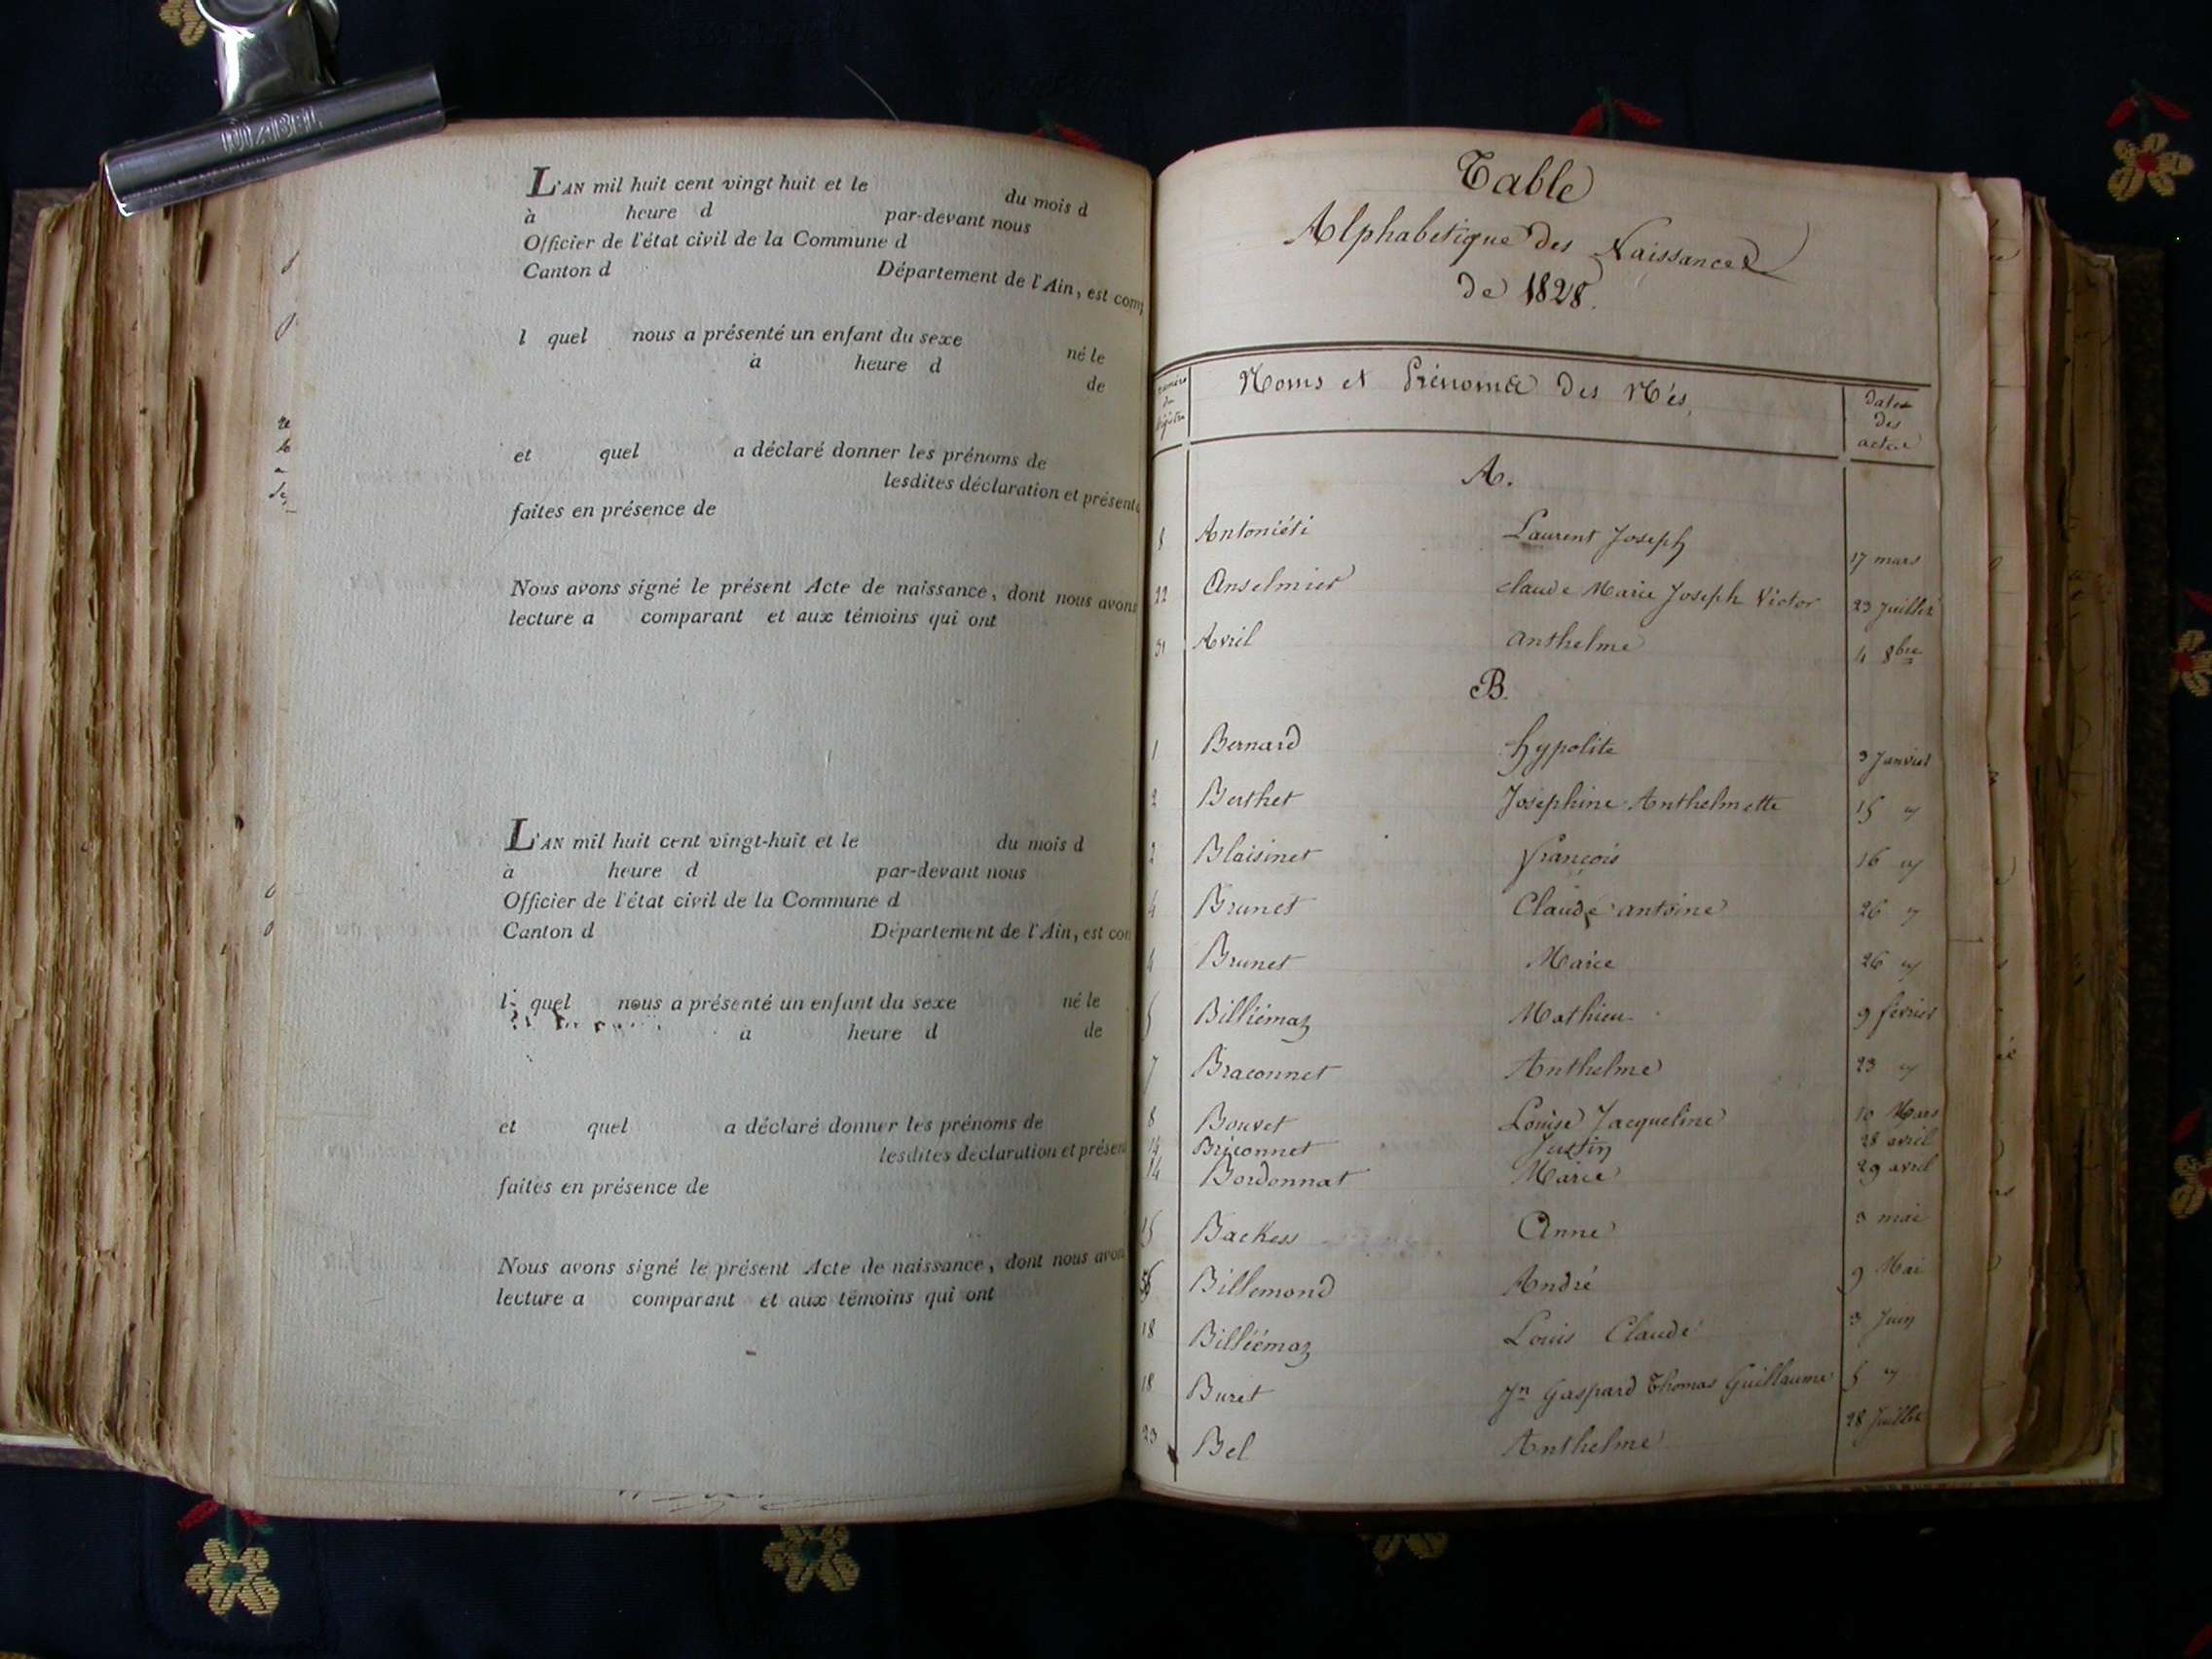 L'AN mil huit cent vingt huit et le du mois d
à heure d par-devant nous
Officier de l'état civil de la Commune d
Canton d Département de l'Ain, est comp
l quel nous a présenté un enfant du sexe né le
à heure d de
et quel a déclaré donner les prénoms de
lesdites déclaration et présenta
faites en présence de
Nous avons signé le présent Acte de naissance, dont nous avons
lecture a comparant et aux témoins qui ont
L'AN mil huit cent vingt-huit et le du mois d
à heure d par-devant nous
Officier de l'état civil de la Commune d
Canton d Département de l'Ain, est com
l quel nous a présenté un enfant du sexe né le
à heure d de
et quel a déclaré donner les prénoms de
lesdites déclaration et présen
faites en présence de
Nous avons signé le présent Acte de naissance, dont nous avon
lecture a comparant et aux témoins qui ont
Table
Alphabetique des Naissances
de 1828.
Noms et Prénoms des Nés, Dates
des
actes
A.
Antoniéti Laurent Joseph 17 mars
22 Anselmier claude Marie Joseph Victor 23 Juillet
31 Avril anthelme 4 8bre
B.
1 Bernard hypolite 3 Janvier
2 Berthet Josephine Anthelmette 15 "
2 Blaisinet françois 16 "
4 Brunet Claude antoine 26 "
4 Brunet Marie 26 "
5 Billiémaz Mathieu 9 février
7 Braconnet Anthelme 23 "
8 Bouvet Louise Jacqueline 10 Mars
14 Briconnet Justin 28 avril
14 Bordonnat Marie 29 avril
15 Backess Anne 3 mai
Billemond André 9 Mai
18 Billiémaz Louis Claude 3 Juin
18 Buret Jn Gaspard Thomas Guillaume 5 "
23 Bel Anthelme 28 Juillet